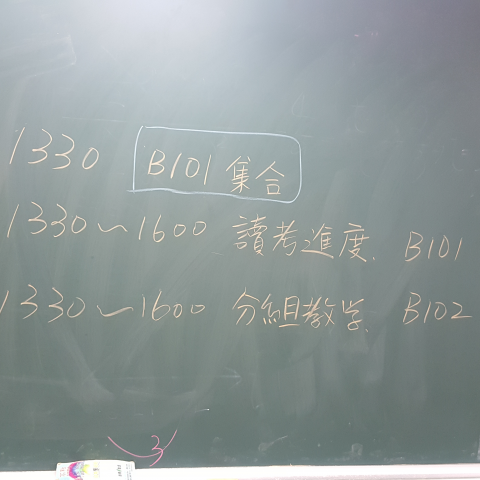 1330 B101 集合
1330~1600 讀考進度. B101
1330~1600 分組教学. B102
3